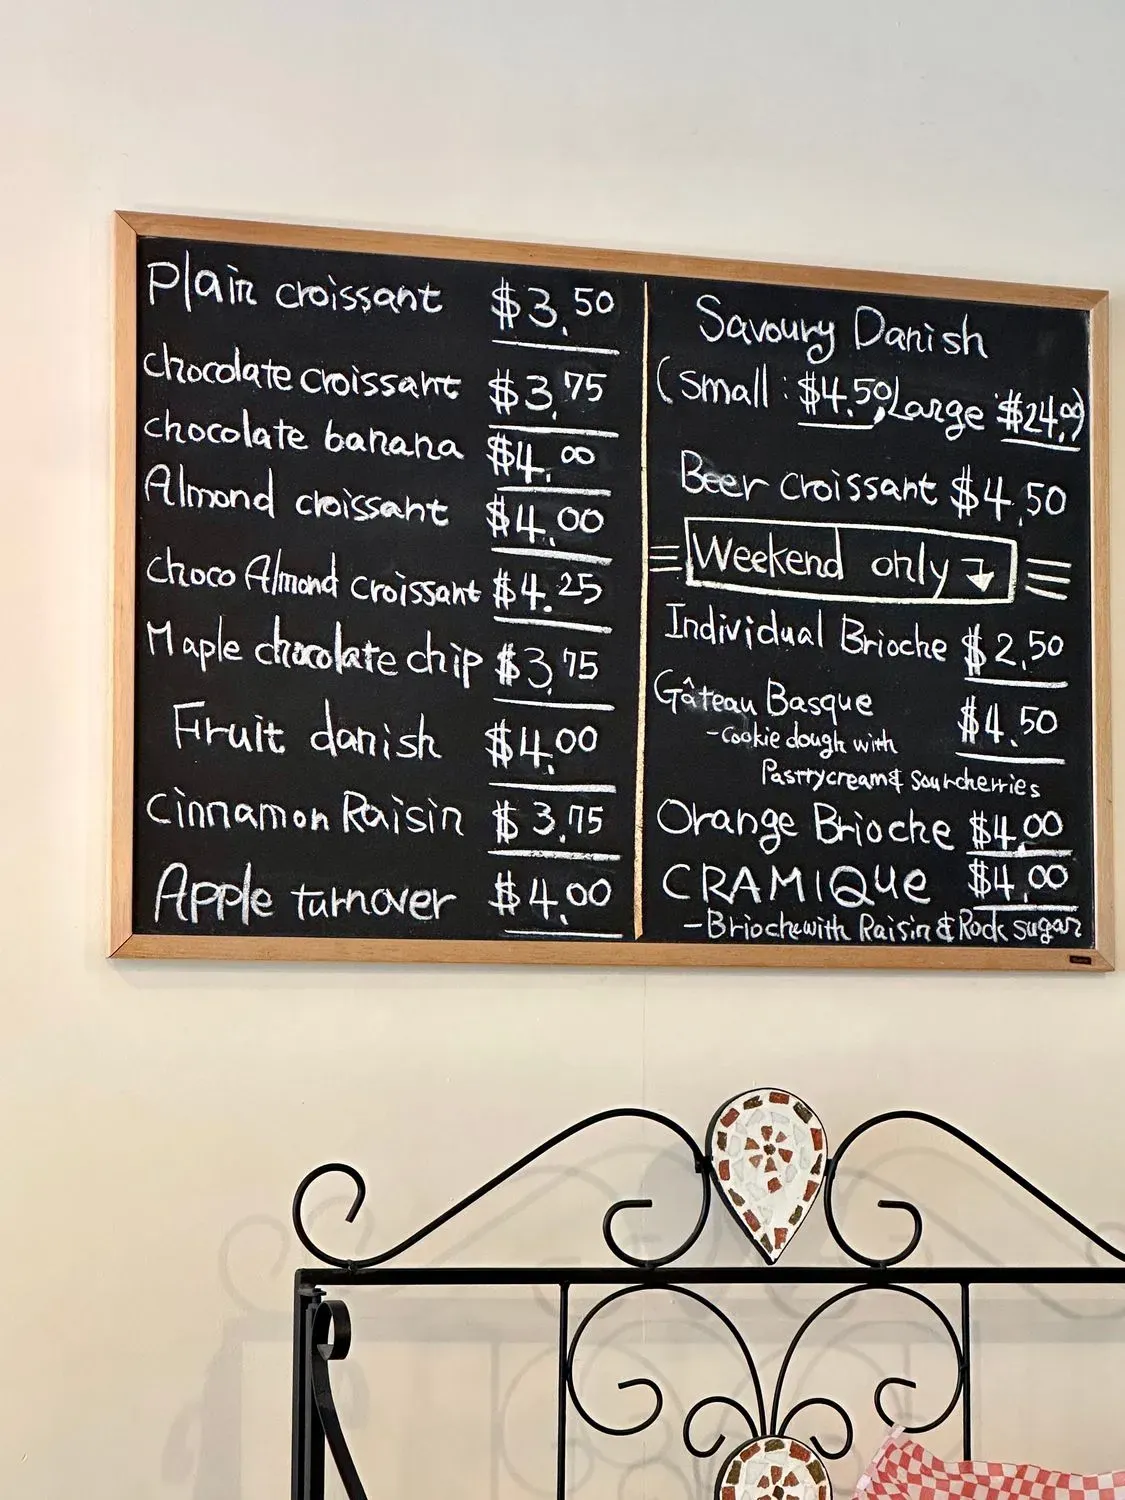 Plain croissant $3.50
chocolate croissant $3.75
chocolate banana $4.00
Almond croissant $4.00
choco Almond croissant $4.25
Maple chocolate chip $3.75
Fruit danish $4.00
cinnamon Raisin $3.75
Apple turnover $4.00
Savoury Danish
(small: $4.50, Large $24.00)
Beer croissant $4.50
Weekend only
Individual Brioche $2.50
Gâteau Basque $4.50
-Cookie dough with
Pastrycream & Sourcherries
Orange Brioche $4.00
CRAMIQUe $4.00
-Brioche with Raisin & Rock sugar